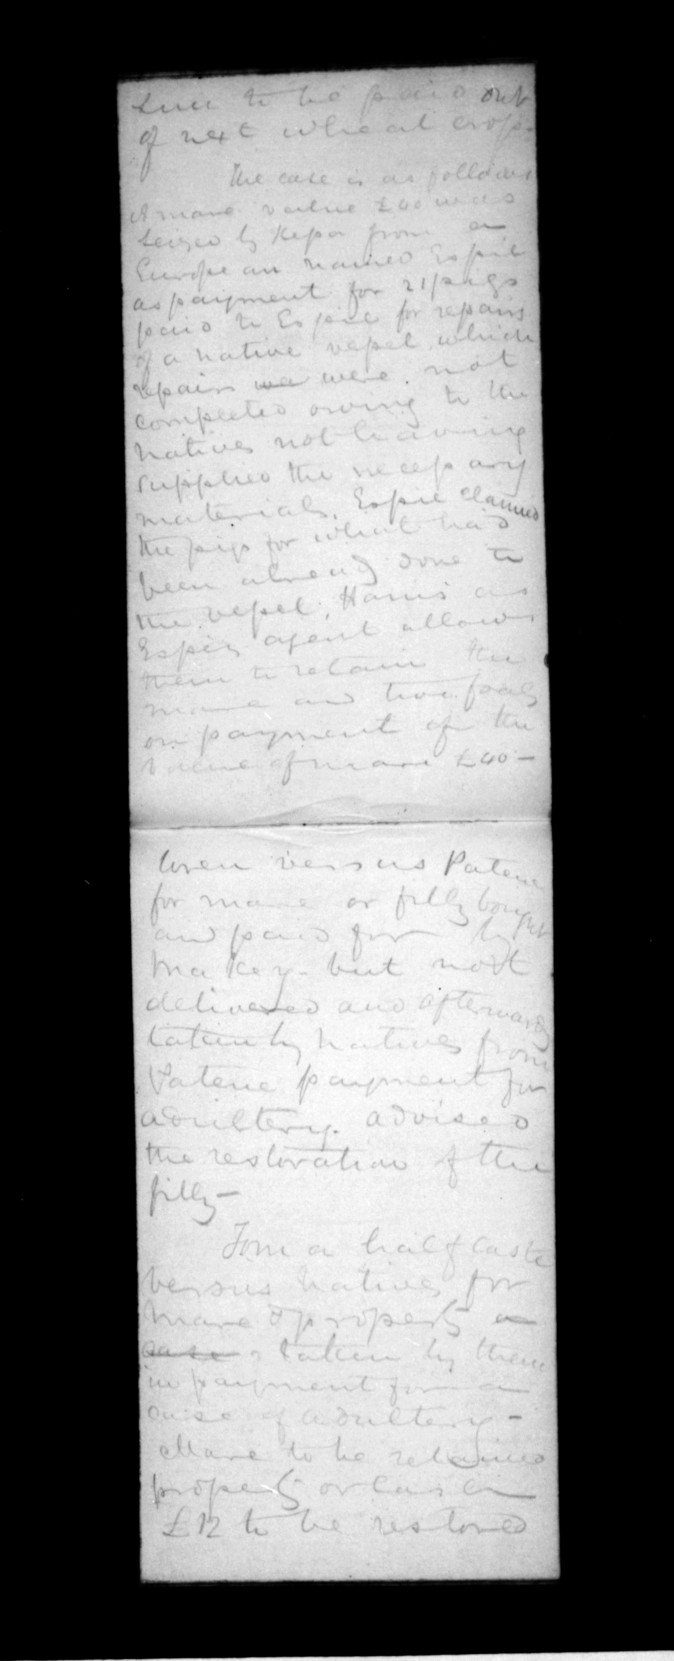 sum to be paid out
of next wheat crop.
The case is as follows
A mare value £40 was
seized by Kepa from a
European named Espie
as payment for 21 pigs
paid to Espie for repairs
of a native vessel which
repairs we were not
completed owing to the
natives not having
supplied the necessary
materials. Espie claimed
the pigs for what had
been already done to
the vessel. Harris as
Espies agent allows
them to retain the
mare and two foals
on payment of the
value of mare £40 —
versus Patene
for mare or filly bought
and paid for by
Makey - but not
delivered and afterwards
taken by natives from
Patene payment for
adultery. advised
the restoration of the
filly —
Tom a half caste
versus natives for
mare & property a
case & taken by them
in payment for a
case of adultery —
Mare to be retained
property or cash
£12 to be restored